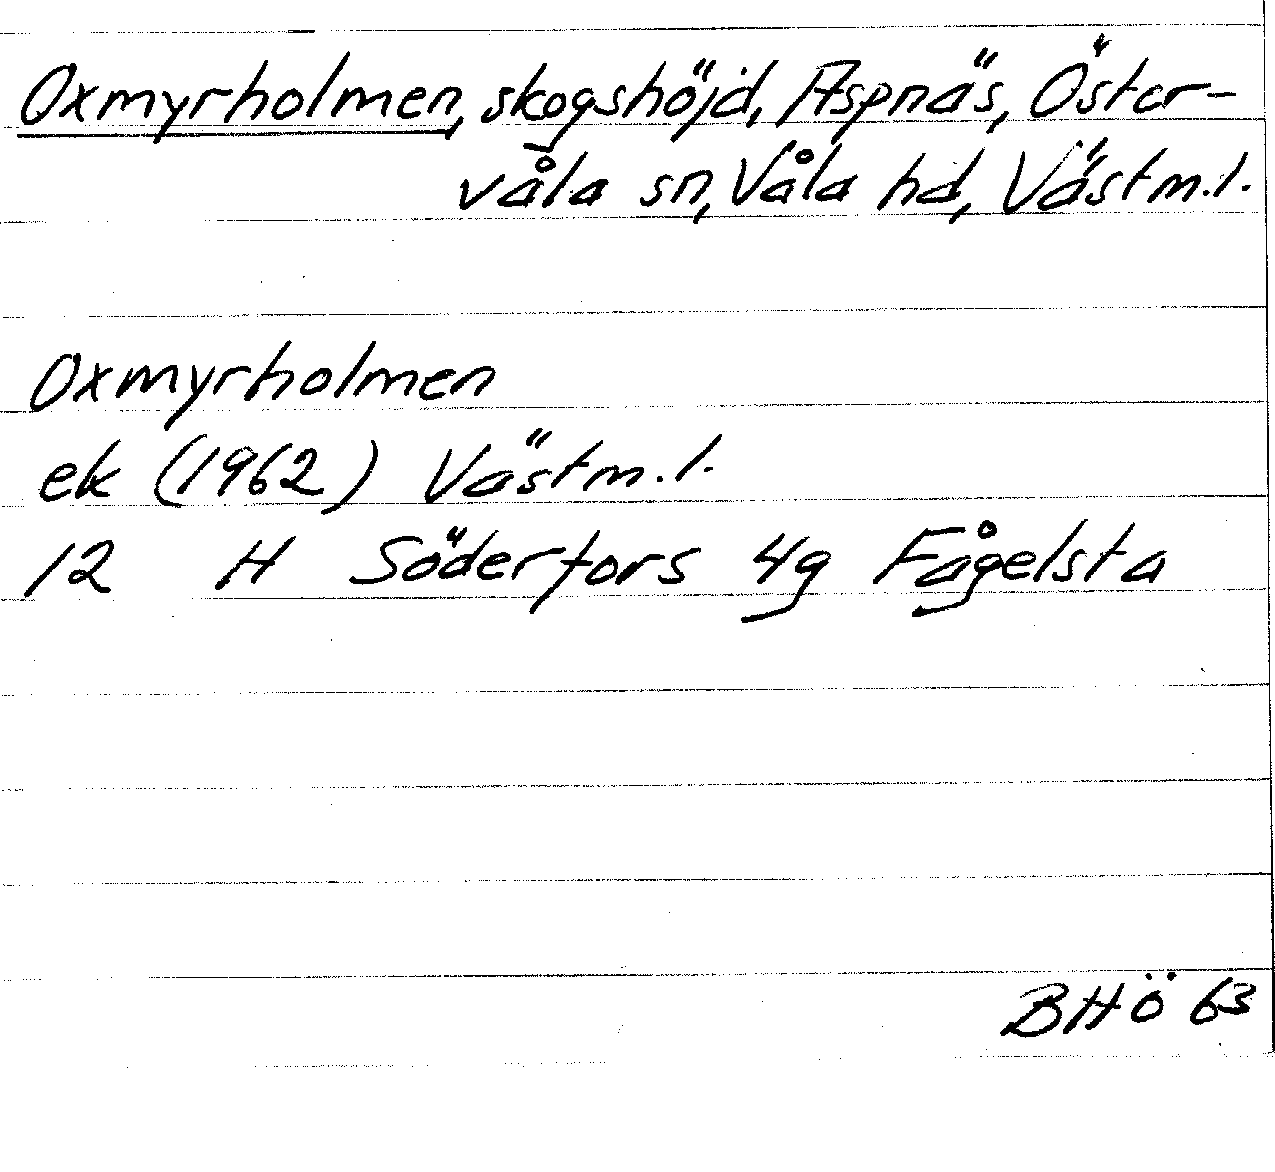 Oxmyrholmen, skogshöjd, Aspnäs, Öster-
våla sn, Våla hd, Västm.l.
Oxmyrholmen
ek (1962) Västm.l.
12 H Söderfors 4g Fågelsta
BHÖ 63